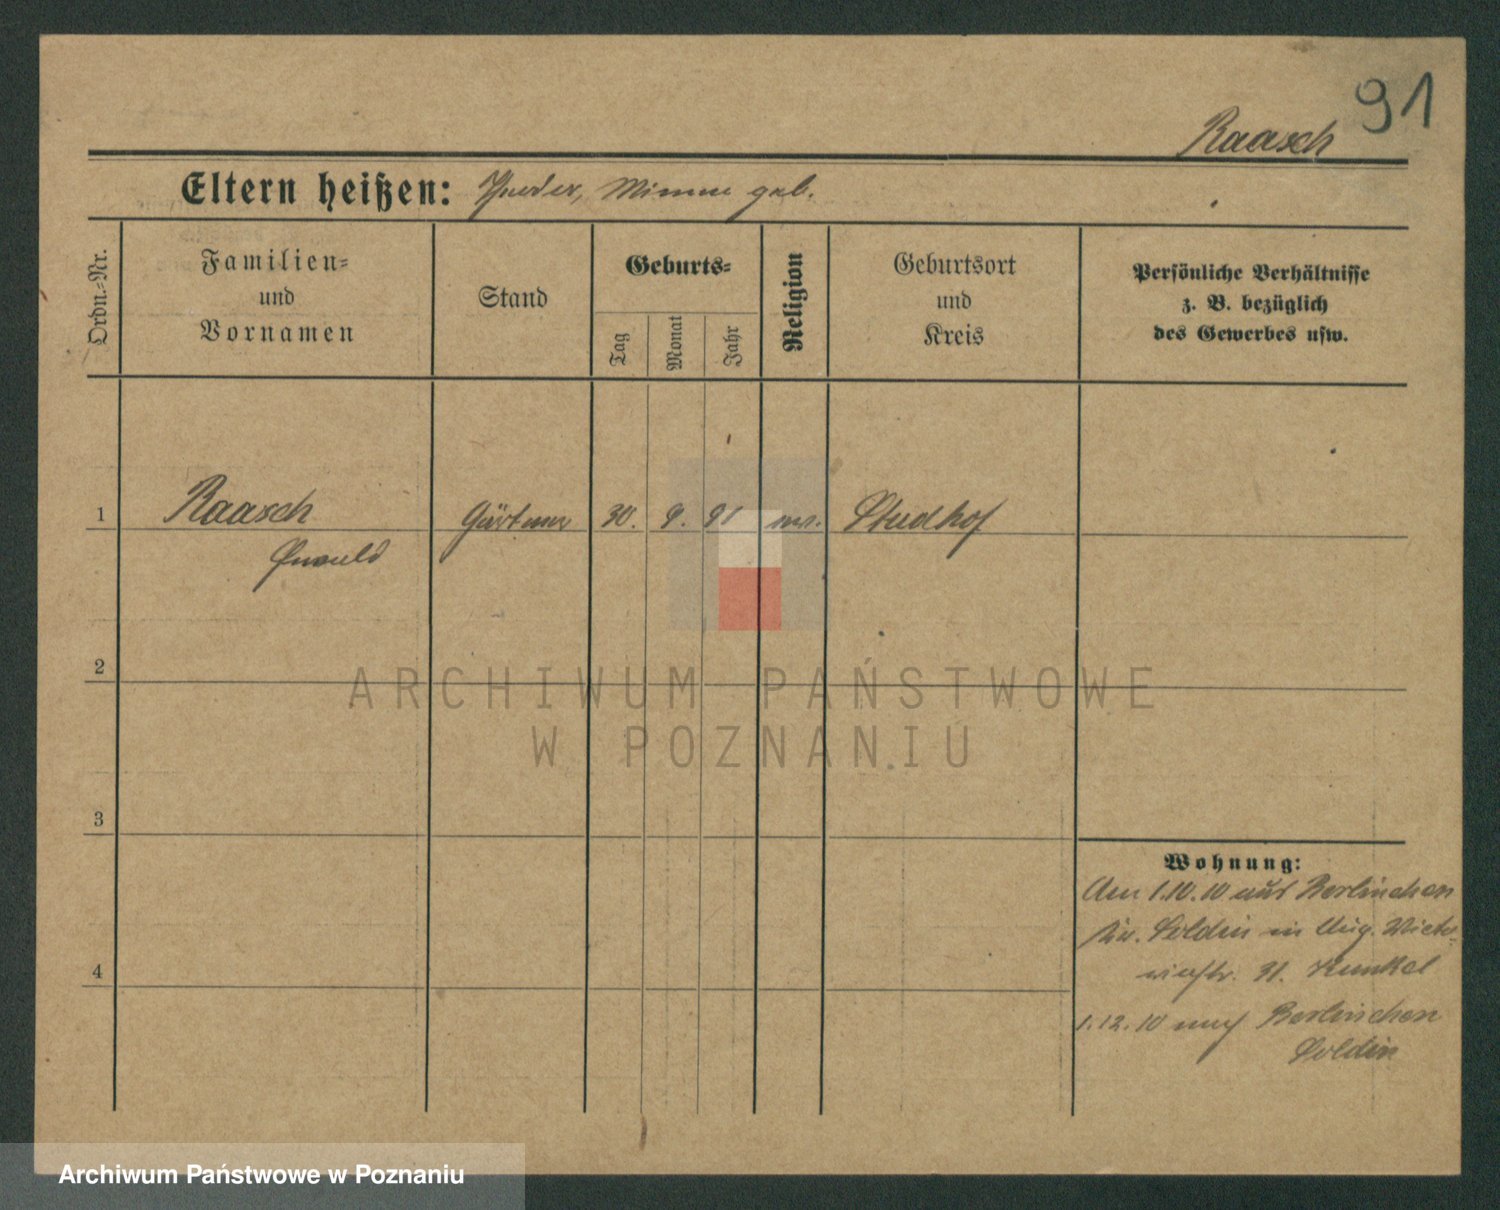 91
Raasch
Eltern heißen: geb.
Ordn.-Nr.
Familien-
und
Vornamen
Stand
Geburts-
Tag
Monat
Jahr
Religion
Geburtsort
und
Kreis
Persönliche Verhältnisse
z. B. bezüglich
des Gewerbes usw.
1 Raasch Gärtner 30. 9. 91 Studhof
2
ARCHIWUM PAŃSTWOWE
W POZNANIU
3
Wohnung:
Am 1.10.10 aus Berlinchen
Soldin in
31. Kunkel
4
1.12.10 nach Berlinchen
Soldin
Archiwum Państwowe w Poznaniu